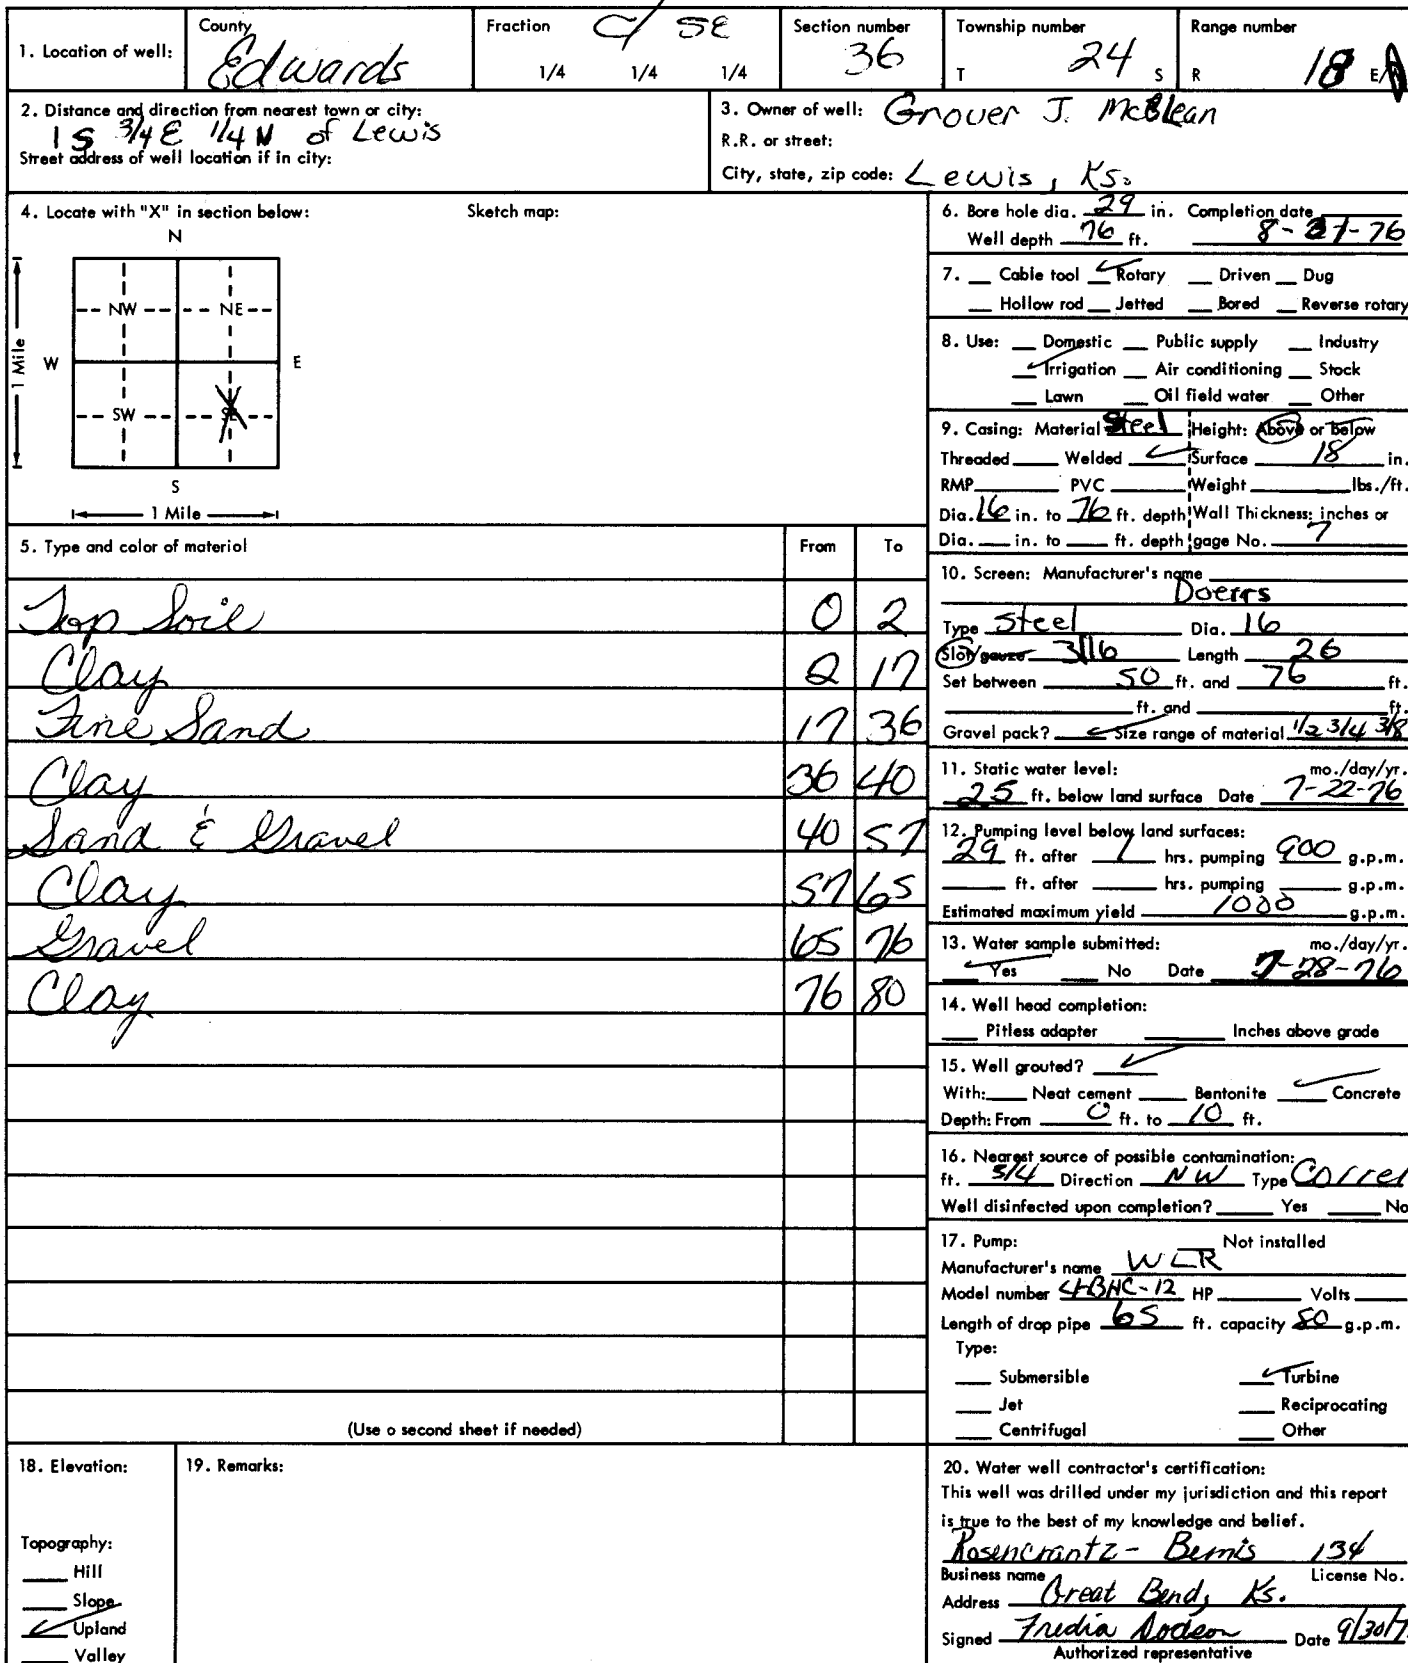 1. Location of well: County Edwards Fraction C/ SE 1/4 1/4 1/4 Section number 36 Township number T 24 S Range number R 18 E/
2. Distance and direction from nearest town or city:
1 S 3/4 E 1/4 N of Lewis
Street address of well location if in city:
3. Owner of well: Grover J. McClean
R.R. or street:
City, state, zip code: Lewis, Ks.
4. Locate with "X" in section below: Sketch map:
N
NW NE
W E
1 Mile
SW SE
X
S
1 Mile
5. Type and color of material From To
Top Soil 0 2
Clay 2 17
Fine Sand 17 36
Clay 36 40
Sand & Gravel 40 57
Clay 57 65
Gravel 65 76
Clay 76 80
(Use o second sheet if needed)
6. Bore hole dia. 29 in. Completion date
Well depth 76 ft. 8-21-76
7. Cable tool ✓ Rotary Driven Dug
Hollow rod Jetted Bored Reverse rotary
8. Use: Domestic Public supply Industry
✓ Irrigation Air conditioning Stock
Lawn Oil field water Other
9. Casing: Material Steel Height: Above or below
Threaded Welded ✓ Surface 18 in.
RMP PVC Weight lbs./ft.
Dia. 16 in. to 76 ft. depth Wall Thickness: inches or
Dia. in. to ft. depth gage No. 7
10. Screen: Manufacturer's name
Doerrs
Type Steel Dia. 16
Slot/gauze 3/16 Length 26
Set between 50 ft. and 76 ft.
ft. and ft.
Gravel pack? ✓ Size range of material 1/2 3/4 3/8
11. Static water level: mo./day/yr.
25 ft. below land surface Date 7-22-76
12. Pumping level below land surfaces:
29 ft. after 1 hrs. pumping 900 g.p.m.
ft. after hrs. pumping g.p.m.
Estimated maximum yield 1000 g.p.m.
13. Water sample submitted: mo./day/yr.
✓ Yes No Date 7-28-76
14. Well head completion:
Pitless adapter Inches above grade
15. Well grouted? ✓
With: Neat cement Bentonite ✓ Concrete
Depth: From 0 ft. to 10 ft.
16. Nearest source of possible contamination:
ft. Direction NW Type Correl
Well disinfected upon completion? Yes No
17. Pump: Not installed
Manufacturer's name WLR
Model number HP Volts
Length of drop pipe 65 ft. capacity g.p.m.
Type:
Submersible ✓ Turbine
Jet Reciprocating
Centrifugal Other
18. Elevation:
Topography:
Hill
Slope
✓ Upland
Valley
19. Remarks:
20. Water well contractor's certification:
This well was drilled under my jurisdiction and this report
is true to the best of my knowledge and belief.
Rosencrantz-Bemis 134
Business name License No.
Address Great Bend, Ks.
Signed Fredia Dodson Date 9/30/7
Authorized representative